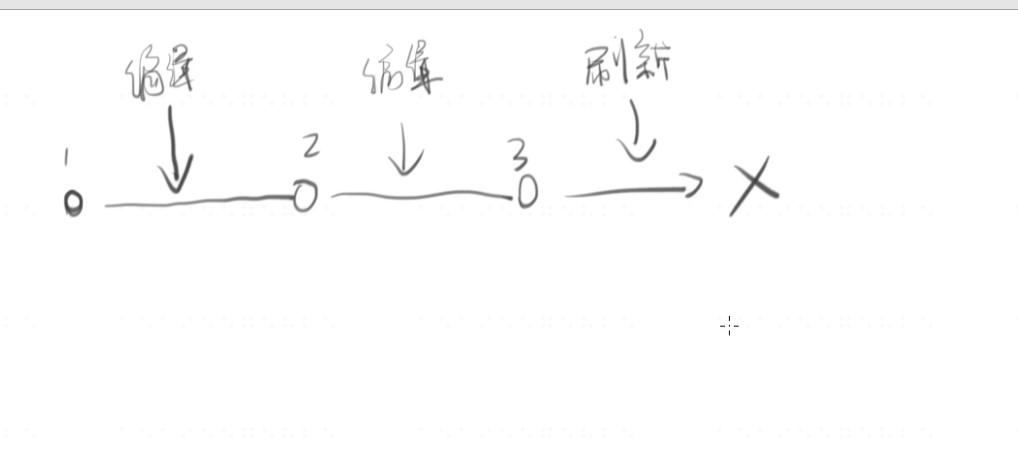 编辑 编辑 刷新
1 2 3